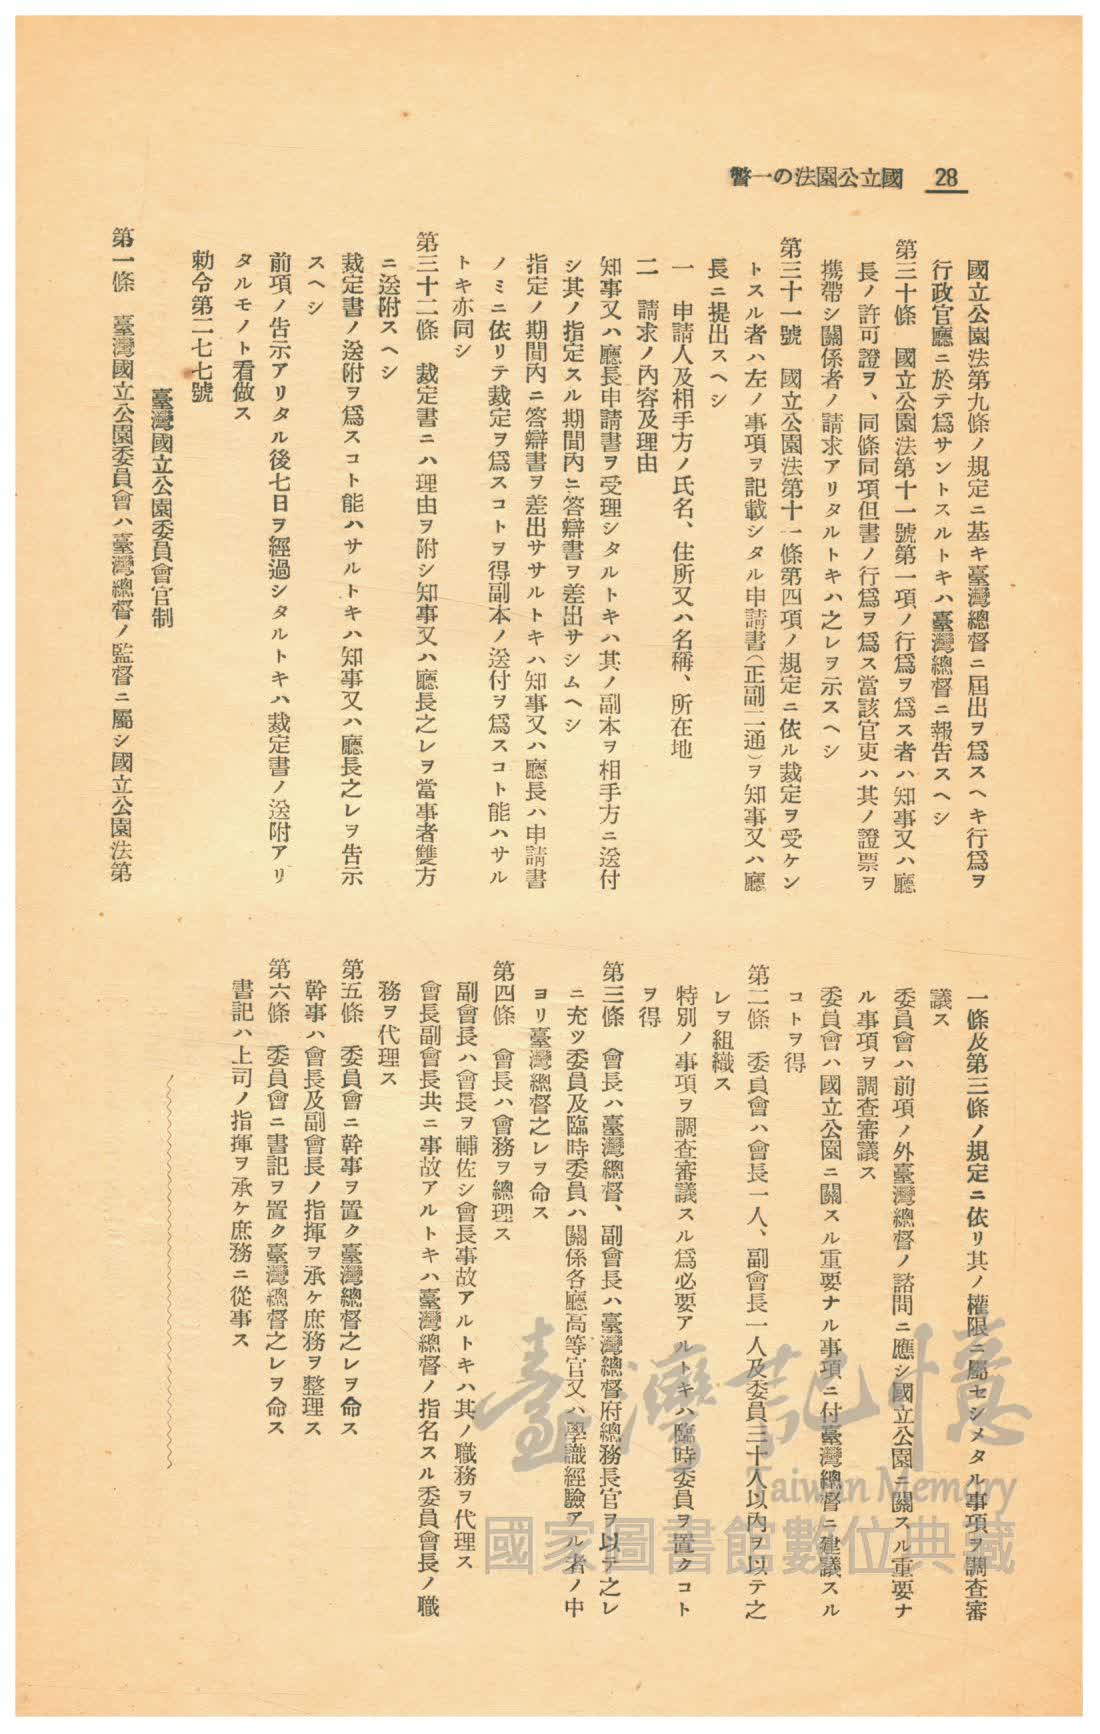 28
國立公園法の一瞥
國立公園法第九條ノ規定ニ基キ臺灣總督ニ屆出ヲ爲スヘキ行爲ヲ
行政官廳ニ於テ爲サントスルトキハ臺灣總督ニ報告スヘシ
第三十條　國立公園法第十一號第一項ノ行爲ヲ爲ス者ハ知事又ハ廳
長ノ許可證ヲ、同條同項但書ノ行爲ヲ爲ス當該官吏ハ其ノ證票ヲ
携帶シ關係者ノ請求アリタルトキハ之レヲ示スヘシ
第三十一號　國立公園法第十一條第四項ノ規定ニ依ル裁定ヲ受ケン
トスル者ハ左ノ事項ヲ記載シタル申請書（正副二通）ヲ知事又ハ廳
長ニ提出スヘシ
一　申請人及相手方ノ氏名、住所又ハ名稱、所在地
二　請求ノ內容及理由
知事又ハ廳長申請書ヲ受理シタルトキハ其ノ副本ヲ相手方ニ送付
シ其ノ指定スル期間內ニ答辯書ヲ差出サシムヘシ
指定ノ期間內ニ答辯書ヲ差出ササルトキハ知事又ハ廳長ハ申請書
ノミニ依リテ裁定ヲ爲スコトヲ得副本ノ送付ヲ爲スコト能ハサル
トキ亦同シ
第三十二條　裁定書ニハ理由ヲ附シ知事又ハ廳長之レヲ當事者雙方
ニ送附スヘシ
裁定書ノ送附ヲ爲スコト能ハサルトキハ知事又ハ廳長之レヲ告示
スヘシ
前項ノ告示アリタル後七日ヲ經過シタルトキハ裁定書ノ送附アリ
タルモノト看做ス
勅令第二七七號
臺灣國立公園委員會官制
第一條　臺灣國立公園委員會ハ臺灣總督ノ監督ニ屬シ國立公園法第
一條及第三條ノ規定ニ依リ其ノ權限ニ屬セシメタル事項ヲ調查審
議ス
委員會ハ前項ノ外臺灣總督ノ諮問ニ應シ國立公園ニ關スル重要ナ
ル事項ヲ調查審議ス
委員會ハ國立公園ニ關スル重要ナル事項ニ付臺灣總督ニ建議スル
コトヲ得
第二條　委員會ハ會長一人、副會長一人及委員三十人以內ヲ以テ之
レヲ組織ス
特別ノ事項ヲ調查審議スル爲必要アルトキハ臨時委員ヲ置クコト
ヲ得
第三條　會長ハ臺灣總督、副會長ハ臺灣總督府總務長官ヲ以テ之レ
ニ充ツ委員及臨時委員ハ關係各廳高等官又ハ學識經驗アル者ノ中
ヨリ臺灣總督之レヲ命ス
第四條　會長ハ會務ヲ總理ス
副會長ハ會長ヲ輔佐シ會長事故アルトキハ其ノ職務ヲ代理ス
會長副會長共ニ事故アルトキハ臺灣總督ノ指名スル委員會長ノ職
務ヲ代理ス
第五條　委員會ニ幹事ヲ置ク臺灣總督之レヲ命ス
幹事ハ會長及副會長ノ指揮ヲ承ケ庶務ヲ整理ス
第六條　委員會ニ書記ヲ置ク臺灣總督之レヲ命ス
書記ハ上司ノ指揮ヲ承ケ庶務ニ從事ス
臺灣記憶
Taiwan Memory
國家圖書館數位典藏